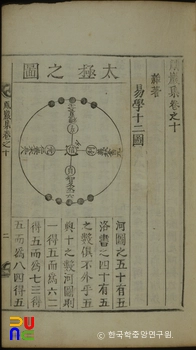 鳳巖集卷之十
雜著
易學十二圖
太極之圖
河圖之五十有五
洛書之四十有五
之數俱不外乎五
與十之數河圖則
一得五而爲六二
得五而爲七三得
五而爲八四得五
鳳巖集卷之十
二
© 한국학중앙연구원